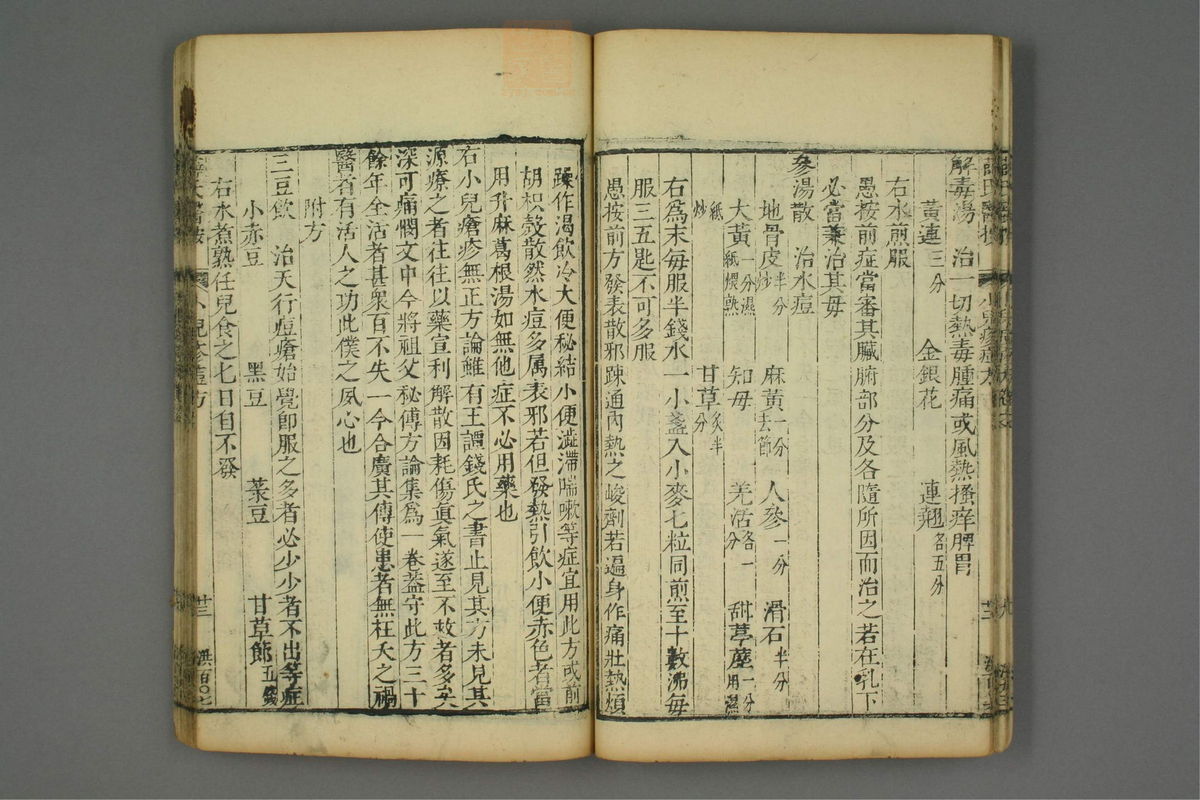 解毒湯　治一切熱毒腫痛或風熱搔痒脾胃
黃連三分　金銀花　連翹各五分
右水煎服
愚按前症當審其臟腑部分及各隨所因而治之若在乳下
必當兼治其母
參湯散　治水痘
地骨皮半分炒　麻黃一分去節　人參一分　滑石半分
大黃一分濕紙煨熟　知母　羌活各一分　甜葶藶一分用濕
紙炒　甘草炙半分
右為末每服半錢水一小盞入小麥七粒同煎至十數沸每
服三五匙不可多服
愚按前方發表散邪踈通內熱之峻劑若遍身作痛壯熱煩
躁作渴飲冷大便秘結小便澁滯喘嗽等症宜用此方或前
胡枳殼散然水痘多属表邪若但發熱引飲小便赤色者當
用升麻葛根湯如無他症不必用藥也
右小兒瘡疹無正方論雖有王譚錢氏之書止見其方未見其
源療之者往往以藥宣利解散因耗傷眞氣遂至不救者多矣
深可痛憫文中今將祖父秘傳方論集爲一卷葢守此方三十
餘年全活者甚衆百不失一今合廣其傳使患者無枉夭之禍
醫者有活人之功此僕之夙心也
附方
三豆飲　治天行痘瘡始覺卽服之多者必少少者不出等症
小赤豆　黑豆　菉豆　甘草節五錢
右水煮熟任兒食之七日自不發
廿三